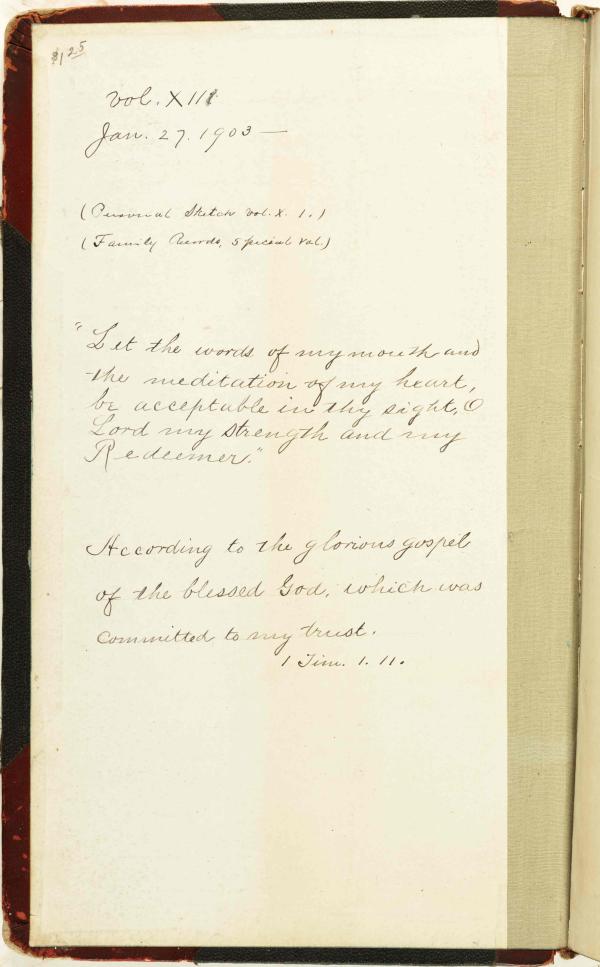 $1.25
Vol. XIII
Jan. 27. 1903 —
(Personal Sketch Vol. X. 1.)
(Family Records, Special Vol.)
"Let the words of my mouth and
the meditation of my heart,
be acceptable in thy sight, O
Lord my strength and my
Redeemer."
According to the glorious gospel
of the blessed God, which was
committed to my trust.
1 Tim. 1. 11.